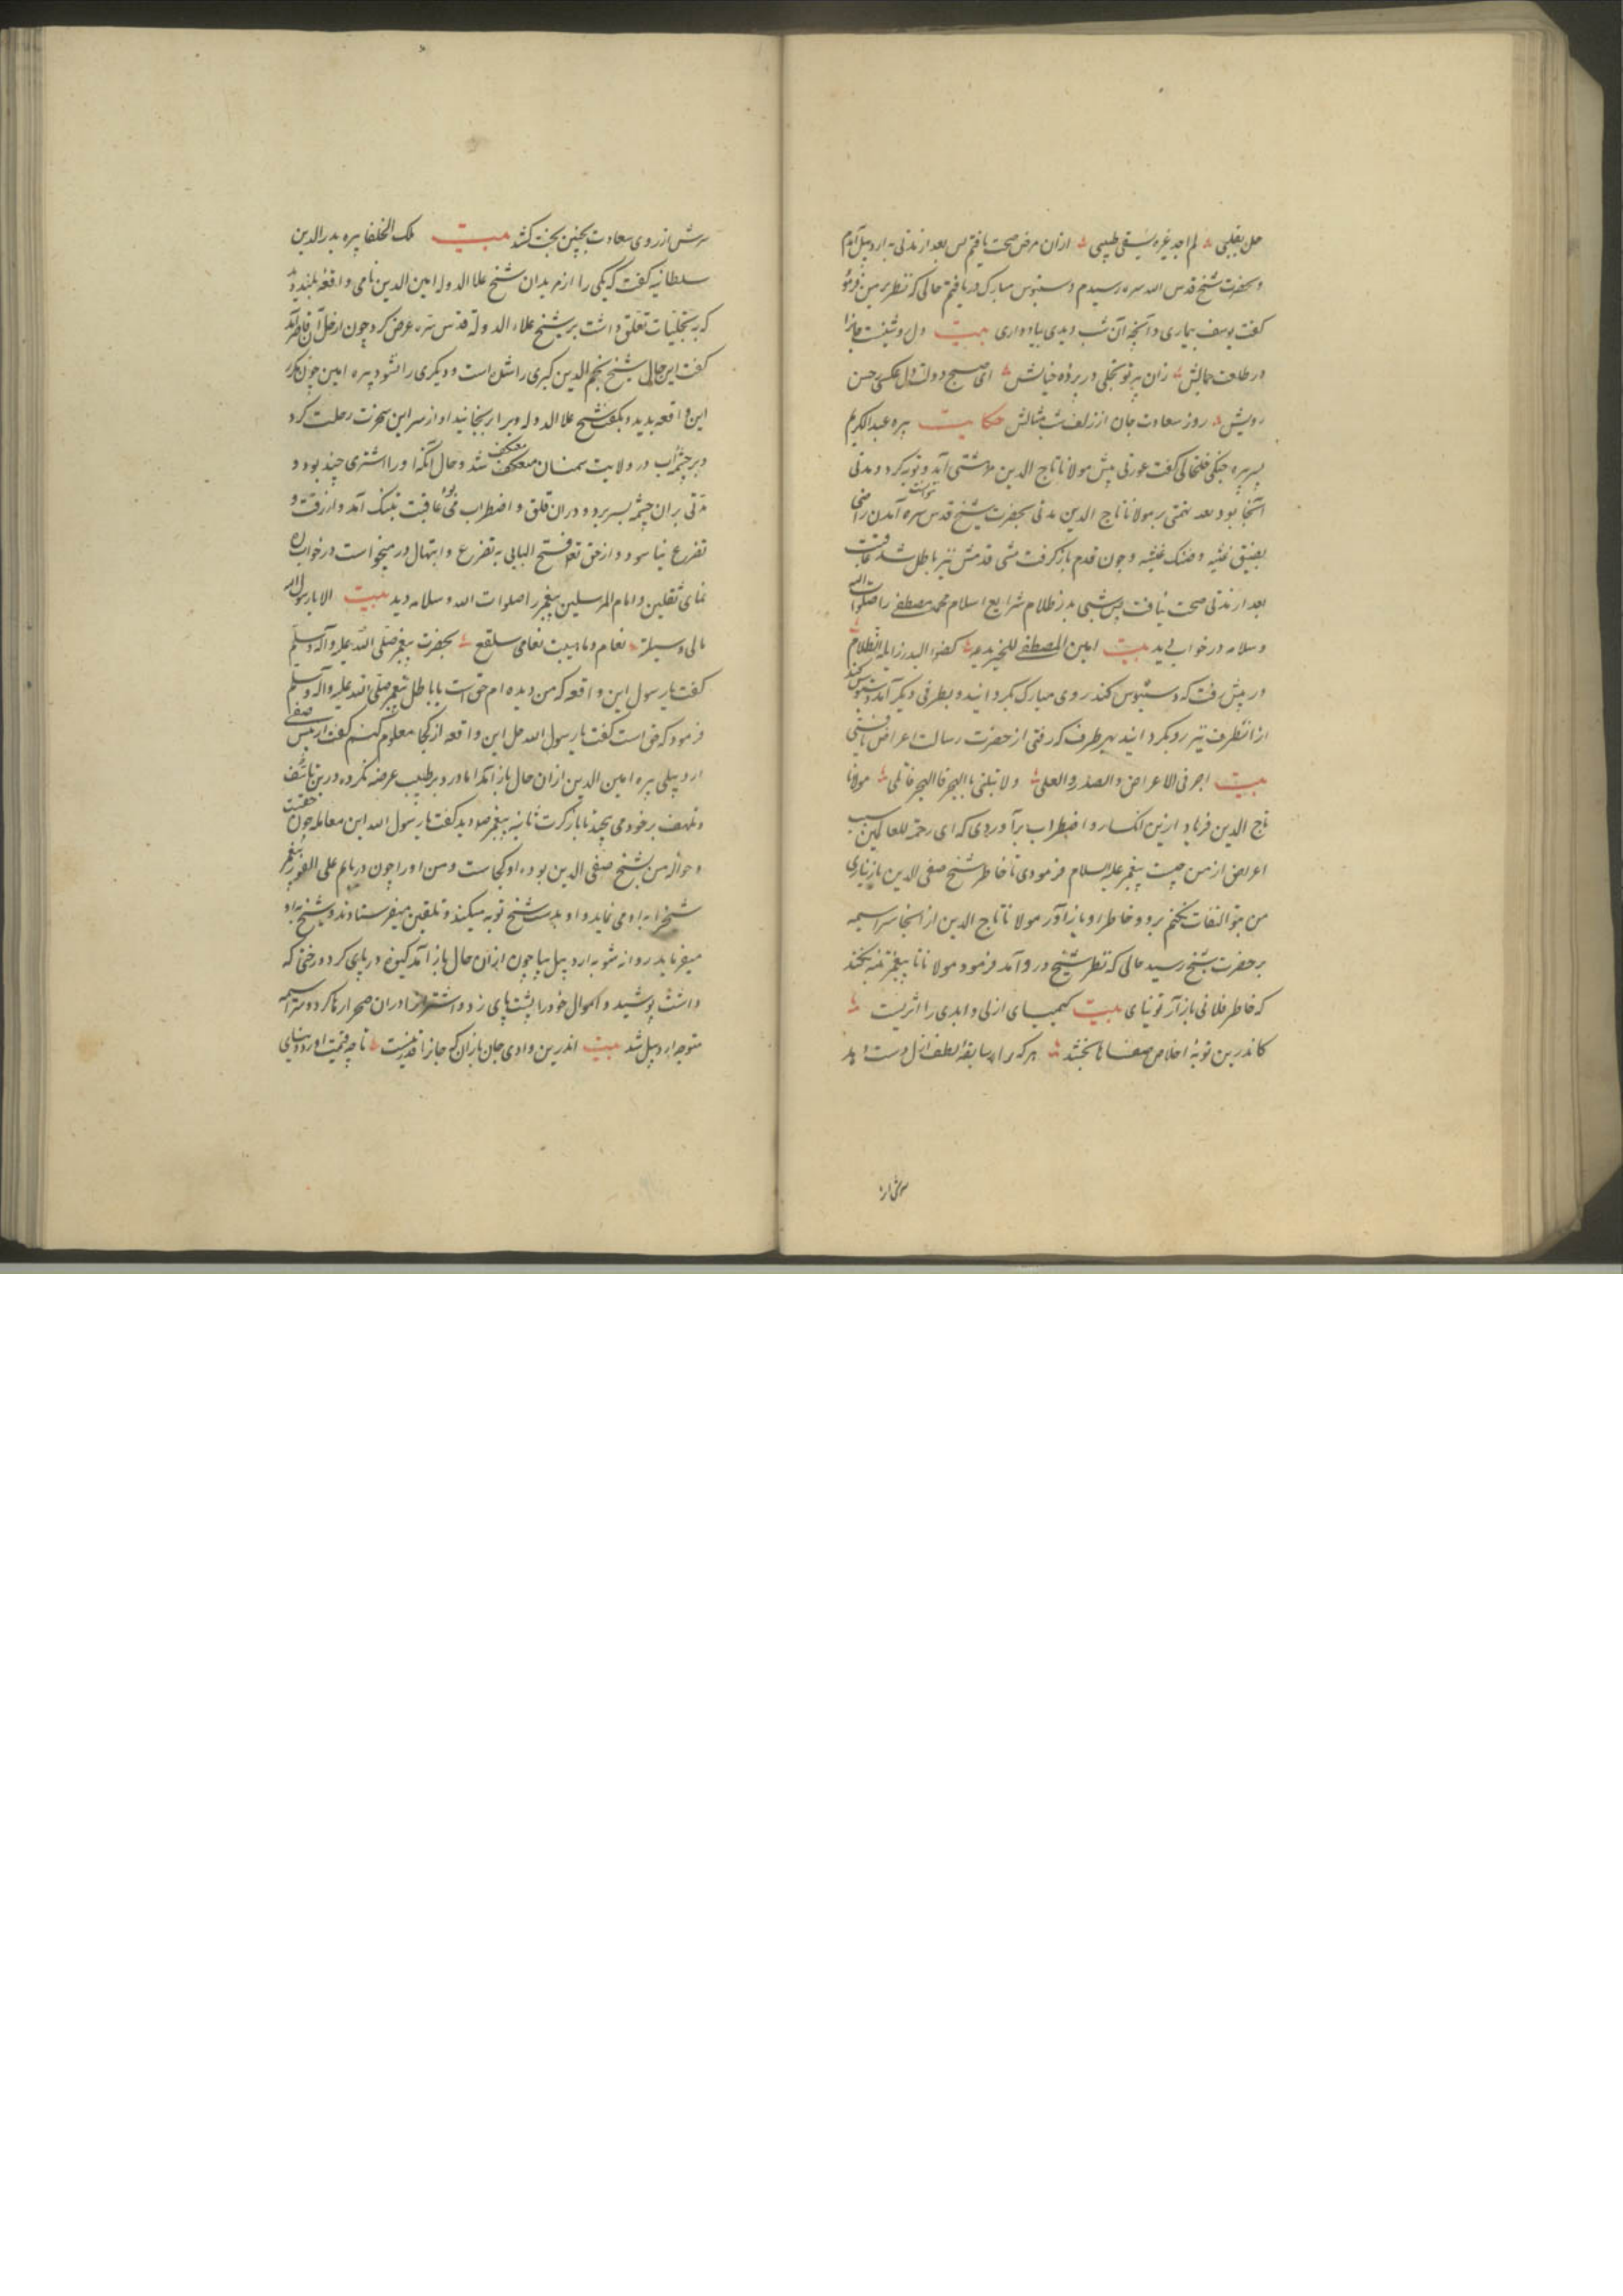 حل بقلبی لم اجد غیره یشفی طبیبی ازان مرض صحت یافتم پس بعد از مدتی به اردبیل آمدم
و بحضرت شیخ قدس الله سره رسیدم و دستبوس مبارک دریافتم حالی که نظر بر من فرمود
گفت یوسف بیماری و آنچه آن شب دیدی بیاد داری بیت دل روشنست جانرا
در طلعت جمالش زان پرتو تجلی در پرده خیالش ای صبح دولت دل عکسی ز حسن
رویش روز سعادت جان از زلف شب مثالش حکایت پیره عبدالکریم
پسر پیره جنکی خلخالی گفت عورتی پیش مولانا تاج الدین آمد و توبه کرد و مدتی
آنجا بود بعد تهمتی بر مولانا تاج الدین مدتی بحضرت شیخ قدس سره آمدن نتوانست راضی
بضیق و ضنک عیشه و چون قدم باز گرفت مشی قدمش نیز باطل شد عاقبت
بعد از مدتی صحت نیافت پس شبی بدر ظلام شرایع اسلام محمد مصطفی را صلوات الله
و سلامه در خواب دید بیت امین المصطفی للخیر یدعو کضوء البدر زایله الظلام
در پیش رفت که دستبوس کند روی مبارک بگردانید و بطرفی دیگر آمد و دستبوس کند
از انطرف نیز رو بگردانید بهر طرف که رفتی از حضرت رسالت اعراض یافتی
بیت اجر فی الاعراض والصدر والعلی ولا تبلنی بالهجر فالهجر قاتلی مولانا
تاج الدین فریاد ازین انکسار و اضطراب برآوردی که ای رحمة للعالمین سبب
اعراض از من چیست پیغمبر علیه السلام فرمودی تا خاطر شیخ صفی الدین باز نیاری
من بتو التفات نکنم برو و خاطر او باز آور مولانا تاج الدین از انجا سراسیمه
بر حضرت شیخ رسید حالی که نظر شیخ در و آمد فرمود مولانا تا پیغمبر تنبیه نکند
که خاطر فلانی باز آر تو نیای بیت کیمیای ازلی و ابدی را اثریست
کاندرین توبه اخلاص صفاها بخشد هر که را سابقه لطف ازل دست دهد
سرش از
سرش از روی سعادت بچنین بخت کشد بیت ملک الخلفا پیره بدرالدین
سلطانیه گفت که یکی را از مریدان شیخ علا الدوله امین الدین نامی واقعه بلند بود
که به تجلیات تعلق داشت بر شیخ علاء الدولة قدس سره عرض کرد چون از حل آن قاصر آمد
گفت این حال شیخ نجم الدین کبری را شده است و دیگری را نشود پیره امین چون مکرر
این واقعه بدید و بگفت شیخ علا الدوله ویرا برنجانید او از سر این رحلت کرد
و بر چشمه آب در ولایت سمنان معتکف شد و حال آنکه او را اشتری چند بود و
مدتی بران چشمه بسر برد و دران قلق و اضطراب می بود عاقبت بتنک آمد و از رقت و
تضرع نیاسود و از حق تعالی فتح البابی به تضرع و ابتهال در میخواست در خواب راه
نمای ثقلین و امام المرسلین پیغمبر را صلوات الله و سلامه دید بیت الا یا رسول الله
مالی وسیلة بحضرت پیغمبر صلی الله علیه و آله و سلم
گفت یا رسول این واقعه که من دیده ام حق است یا باطل پیغمبر صلی الله علیه و اله و سلم
فرمود که حق است گفت یا رسول الله حل این واقعه از کجا معلوم کنم گفت از پیش صفی
اردبیلی پیره امین الدین ازان حال باز آمد اما درد بر طبیب عرضه نکرده درین تأسف
و تلهف بر خود می پیچید تا باز کرت ثانیه پیغمبر صلوه دید گفت یا رسول الله این معامله چون حقست
و حواله من بشیخ صفی الدین بود او کجاست و من او را چون دریابم علی الفور پیغمبر
شیخ را به او می نماید و او بدست شیخ توبه میکند و تلقین میفرستاوند و شیخ به او
میفرماید روانه شو به اردبیل بیا چون ازان حال باز آمد گیوه در پای کرد و رختی که
داشت پوشید و اموال خود را پشت پای زد و اشترانرا دران صحرا رها کرد و سراسیمه
متوجه اردبیل شد بیت اندرین وادی جان بازان که جانرا قدر نیست تا چه قیمت آورد دنیای